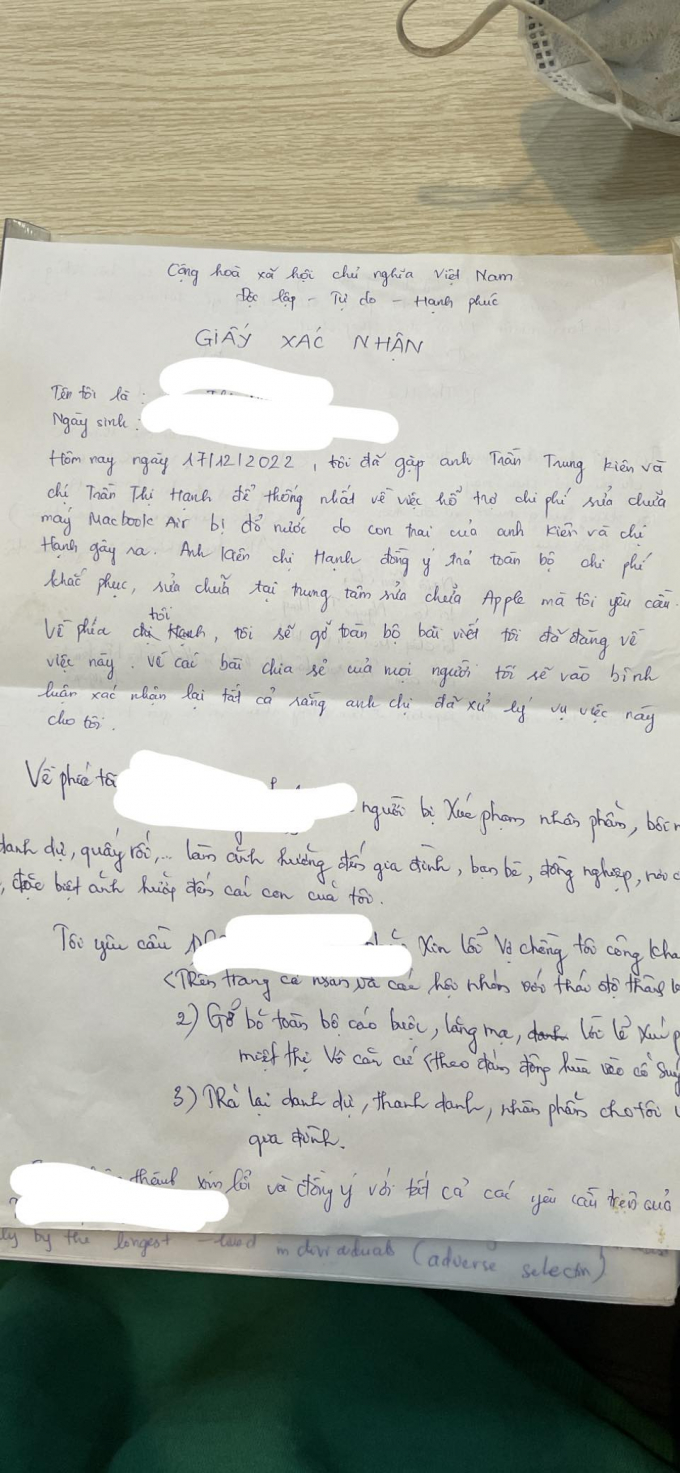 Cộng hoà xã hội chủ nghĩa Việt Nam
Độc lập - Tự do - Hạnh phúc
GIẤY XÁC NHẬN
Tên tôi là :
Ngày sinh :
Hôm nay ngày 17/12/2022, tôi đã gặp anh Trần Trung Kiên và
chị Trần Thị Hạnh để thống nhất về việc hỗ trợ chi phí sửa chữa
máy Macbook Air bị đổ nước do con trai của anh Kiên và chị
Hạnh gây ra. Anh Kiên chị Hạnh đồng ý trả toàn bộ chi phí
khắc phục, sửa chữa tại trung tâm sửa chữa Apple mà tôi yêu cầu.
Về phía tôi, tôi sẽ gỡ toàn bộ bài viết tôi đã đăng về
việc này. Về các bài chia sẻ của mọi người tôi sẽ vào bình
luận xác nhận lại tất cả rằng anh chị đã xử lý vụ việc này
cho tôi.
Về phía tôi
người bị xúc phạm nhân phẩm, bôi
danh dự, quấy rối,... làm ảnh hưởng đến gia đình, bạn bè, đồng nghiệp,
đặc biệt ảnh hưởng đến các con của tôi.
Tôi yêu cầu
xin lỗi Vợ chồng tôi công
(Trên trang cá nhân và các hội nhóm với thái độ
2) Gỡ bỏ toàn bộ cáo buộc, lăng mạ, lời lẽ
miệt thị Vô căn cứ (theo đám đông hùa vào cổ
3) Trả lại danh dự, thanh danh, nhân phẩm cho tôi
gia đình.
thành xin lỗi và đồng ý với tất cả các yêu cầu trên của
by the longest - lived individuals (adverse selection)